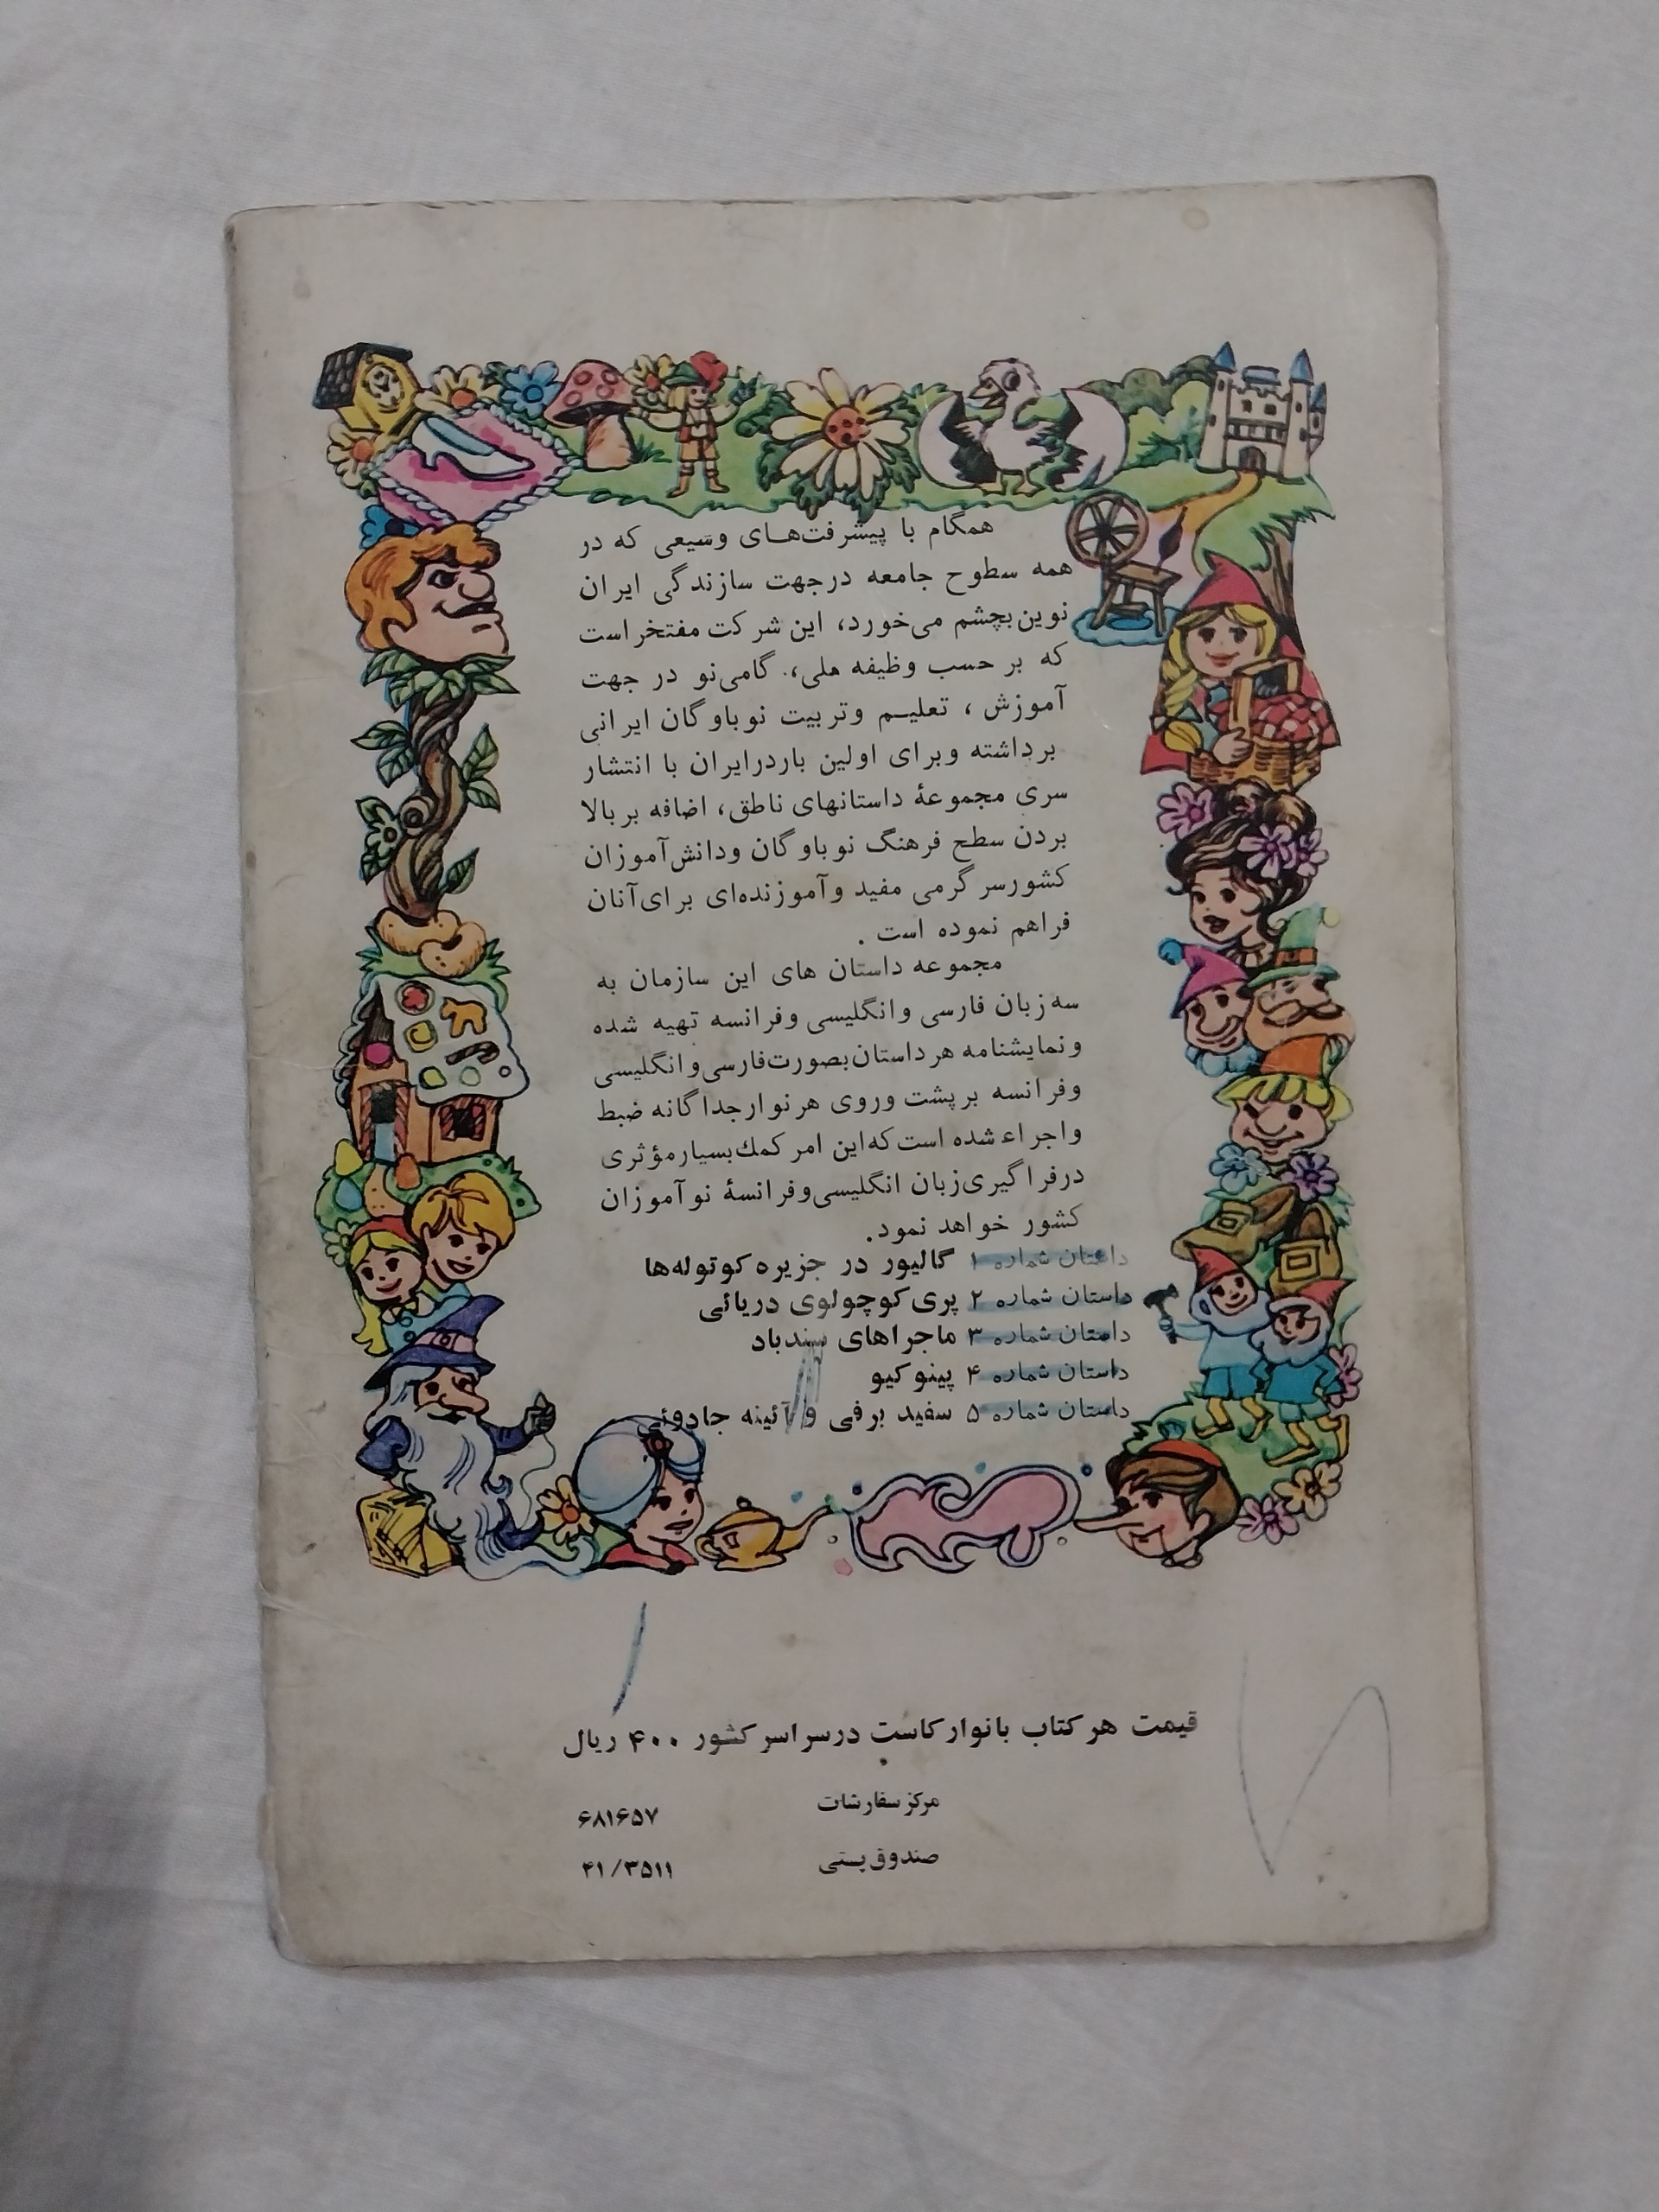 همگام با پیشرفت‌های وسیعی که در
همه سطوح جامعه درجهت سازندگی ایران
نوین بچشم می‌خورد، این شرکت مفتخر است
که بر حسب وظیفه ملی، گامی‌نو در جهت
آموزش ، تعلیم وتربیت نوباوگان ایرانی
برداشته وبرای اولین باردرایران با انتشار
سری مجموعهٔ داستانهای ناطق، اضافه بر بالا
بردن سطح فرهنگ نوباوگان ودانش‌آموزان
کشورسرگرمی مفید وآموزنده‌ای برای‌آنان
فراهم نموده است .
مجموعه داستان های این سازمان به
سه زبان فارسی وانگلیسی وفرانسه تهیه شده
ونمایشنامه هرداستان‌بصورت‌فارسی‌وانگلیسی
وفرانسه برپشت وروی هرنوارجداگانه ضبط
واجراء شده است‌که‌این امر کمك‌بسیارمؤثری
درفراگیری‌زبان انگلیسی‌وفرانسهٔ نوآموزان
کشور خواهد نمود.
داستان شماره ۱ گالیور در جزیره کوتوله‌ها
داستان شماره ۲ پری کوچولوی دریائی
داستان شماره ۳ ماجراهای سندباد
داستان شماره ۴ پینوکیو
داستان شماره ۵ سفید برفی و آئینه جادوئی
قیمت هرکتاب بانوارکاست درسراسرکشور ۴۰۰ ریال
مرکزسفارشات ۶۸۱۶۵۷
صندوق‌پستی ۴۱/۳۵۱۱